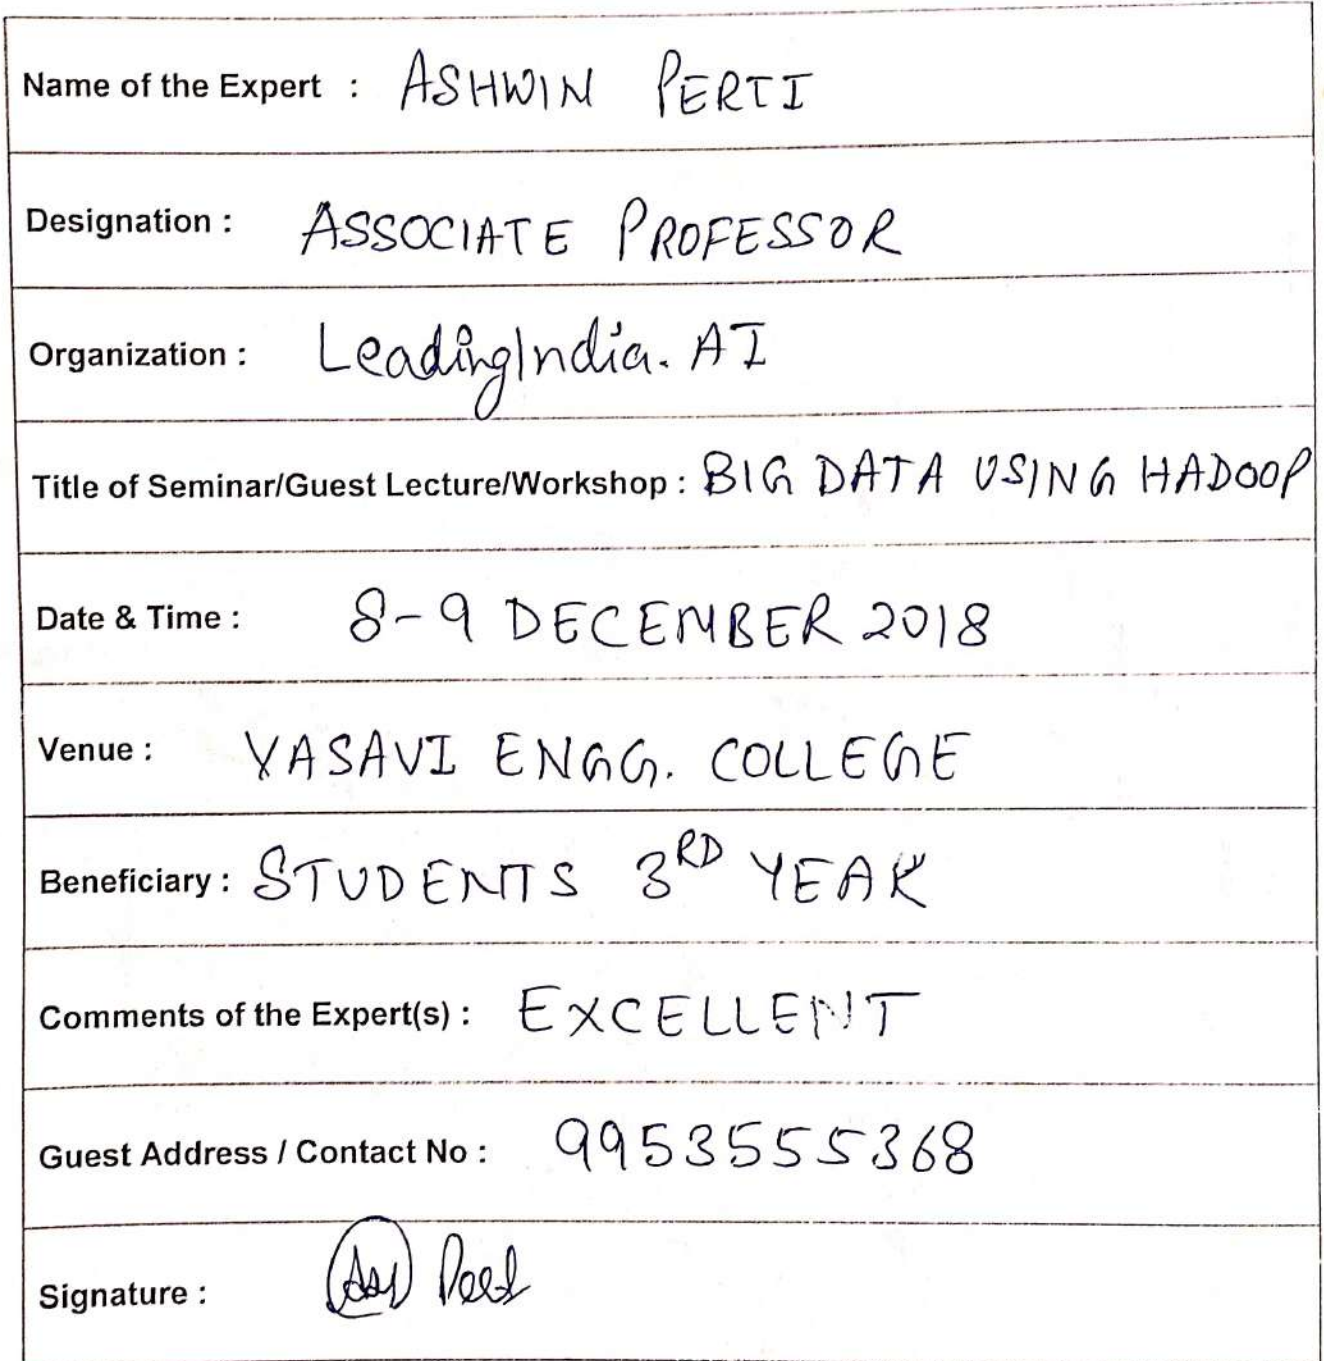 Name of the Expert : ASHWIN PERTI
Designation : ASSOCIATE PROFESSOR
Organization : LeadingIndia. AI
Title of Seminar/Guest Lecture/Workshop : BIG DATA USING HADOOP
Date & Time : 8-9 DECEMBER 2018
Venue : VASAVI ENGG. COLLEGE
Beneficiary : STUDENTS 3RD YEAR
Comments of the Expert(s) : EXCELLENT
Guest Address / Contact No : 9953555368
Signature :